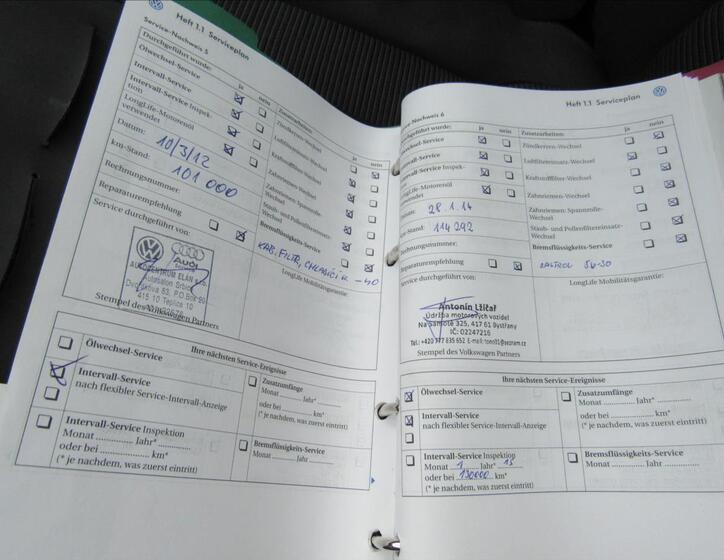 Heft 1.1 Serviceplan
Service-Nachweis 5
Durchgeführt wurde: ja nein Zusatzarbeiten: ja nein
Ölwechsel-Service
Intervall-Service
Intervall-Service Inspek-
tion
LongLife-Motorenöl
verwendet
Datum: 10/3/12
km-Stand: 101 000
Rechnungsnummer:
Reparaturempfehlung
Service durchgeführt von:
Zündkerzen-Wechsel
Luftfiltereinsatz-Wechsel
Kraftstofffilter-Wechsel
Zahnriemen-Wechsel
Zahnriemen: Spannrolle-
Wechsel
Staub- und Pollenfiltereinsatz-
Wechsel
Bremsflüssigkeits-Service
KAB. FILTR, CHLADÍCÍ K. -40
LongLife Mobilitätsgarantie:
Audi
Service
AUTOCENTRUM ELÁN
Autosalon Srbice
Dvojákova 83, P.O.Box 90
415 10 Teplice 10
Stempel des Volkswagen Partners
Ihre nächsten Service-Ereignisse
Ölwechsel-Service
Intervall-Service
nach flexibler Service-Intervall-Anzeige
Intervall-Service Inspektion
Monat ............ Jahr* ..........
oder bei .................. km*
(* je nachdem, was zuerst eintritt)
Zusatzumfänge
Monat .......... Jahr* ..........
oder bei .................. km*
(* je nachdem, was zuerst eintritt)
Bremsflüssigkeits-Service
Monat .......... Jahr ..........
Heft 1.1 Serviceplan
Service-Nachweis 6
Durchgeführt wurde: ja nein Zusatzarbeiten: ja nein
Ölwechsel-Service
Intervall-Service
Intervall-Service Inspek-
tion
LongLife-Motorenöl
verwendet
Datum: 28.1.14
km-Stand: 114 292
Rechnungsnummer:
Reparaturempfehlung
Service durchgeführt von:
Zündkerzen-Wechsel
Luftfiltereinsatz-Wechsel
Kraftstofffilter-Wechsel
Zahnriemen-Wechsel
Zahnriemen: Spannrolle-
Wechsel
Staub- und Pollenfiltereinsatz-
Wechsel
Bremsflüssigkeits-Service
CASTROL 5W-30
LongLife Mobilitätsgarantie:
Antonín Lžičař
Údržba motorových vozidel
Na samotě 325, 417 61 Bystřany
IČ: 02247216
Tel.: +420 777 835 652 E-mail: tono81@seznam.cz
Stempel des Volkswagen Partners
Ihre nächsten Service-Ereignisse
Ölwechsel-Service
Intervall-Service
nach flexibler Service-Intervall-Anzeige
Intervall-Service Inspektion
Monat 1 Jahr* 15
oder bei 130000 km*
(* je nachdem, was zuerst eintritt)
Zusatzumfänge
Monat .......... Jahr* ..........
oder bei .................. km*
(* je nachdem, was zuerst eintritt)
Bremsflüssigkeits-Service
Monat .......... Jahr ..........